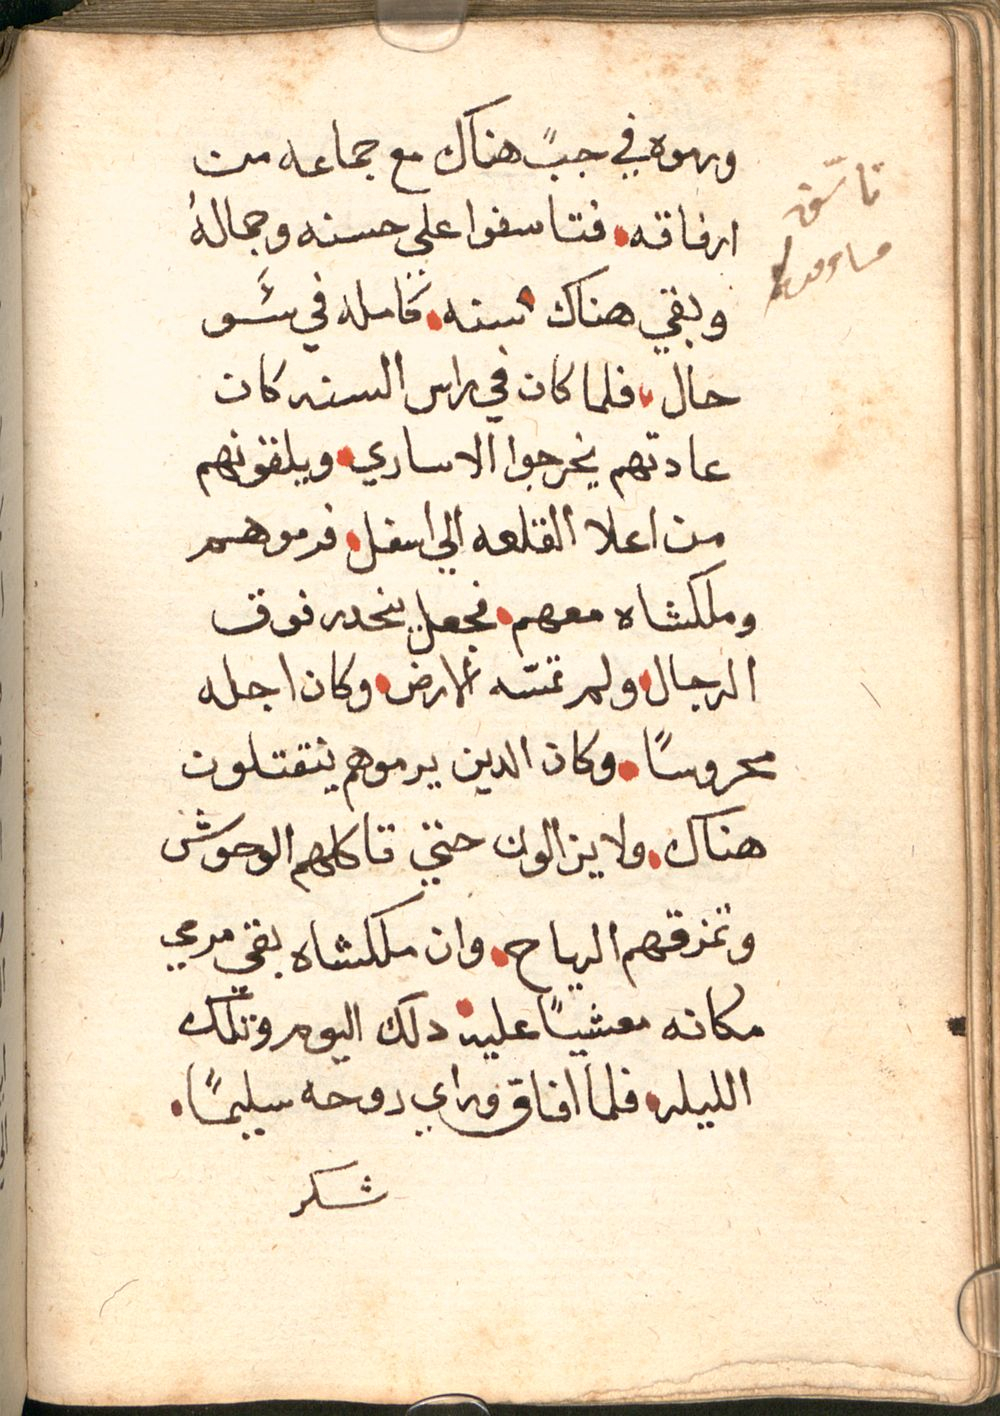 ورموه في جبً هناك مع جماعه من
ارفاقه. فتاسفوا علي حسنه وجمالهُ
وبقي هناك سنه. كامله في سَو
حال. فلما كان في راس السنه كان
عادتهم يخرجوا الاساري. ويلقونهم
من اعلا القلعه الي اسفل. فرموهم
وملكشاه معهم. فجعل ينحدر فوق
الرجال. ولم تمسّه الارض. وكان اجله
محروسًا. وكان الدين يرموهم يتقتلون
هناك. ولا يزالون حتي تاكلهم الوحوش
وتمزقهم الرياح. وان ملكشاه بقي مرمي
مكانه مغشيًا عليه. دلك اليوم وتلك
الليله. فلما افاق وراي روحه سليمًا.
شكر
تاسّف